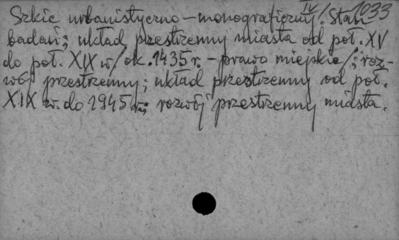 IV/1033
Szkic urbanistyczno-monograficzny/Stan
badań; układ przestrzenny miasta od poł. XV
do poł. XIX w/ok. 1435 r. - prawo miejskie/; roz-
wój przestrzenny; układ przestrzenny od poł.
XIX w. do 1945 r.; rozwój przestrzenny miasta.